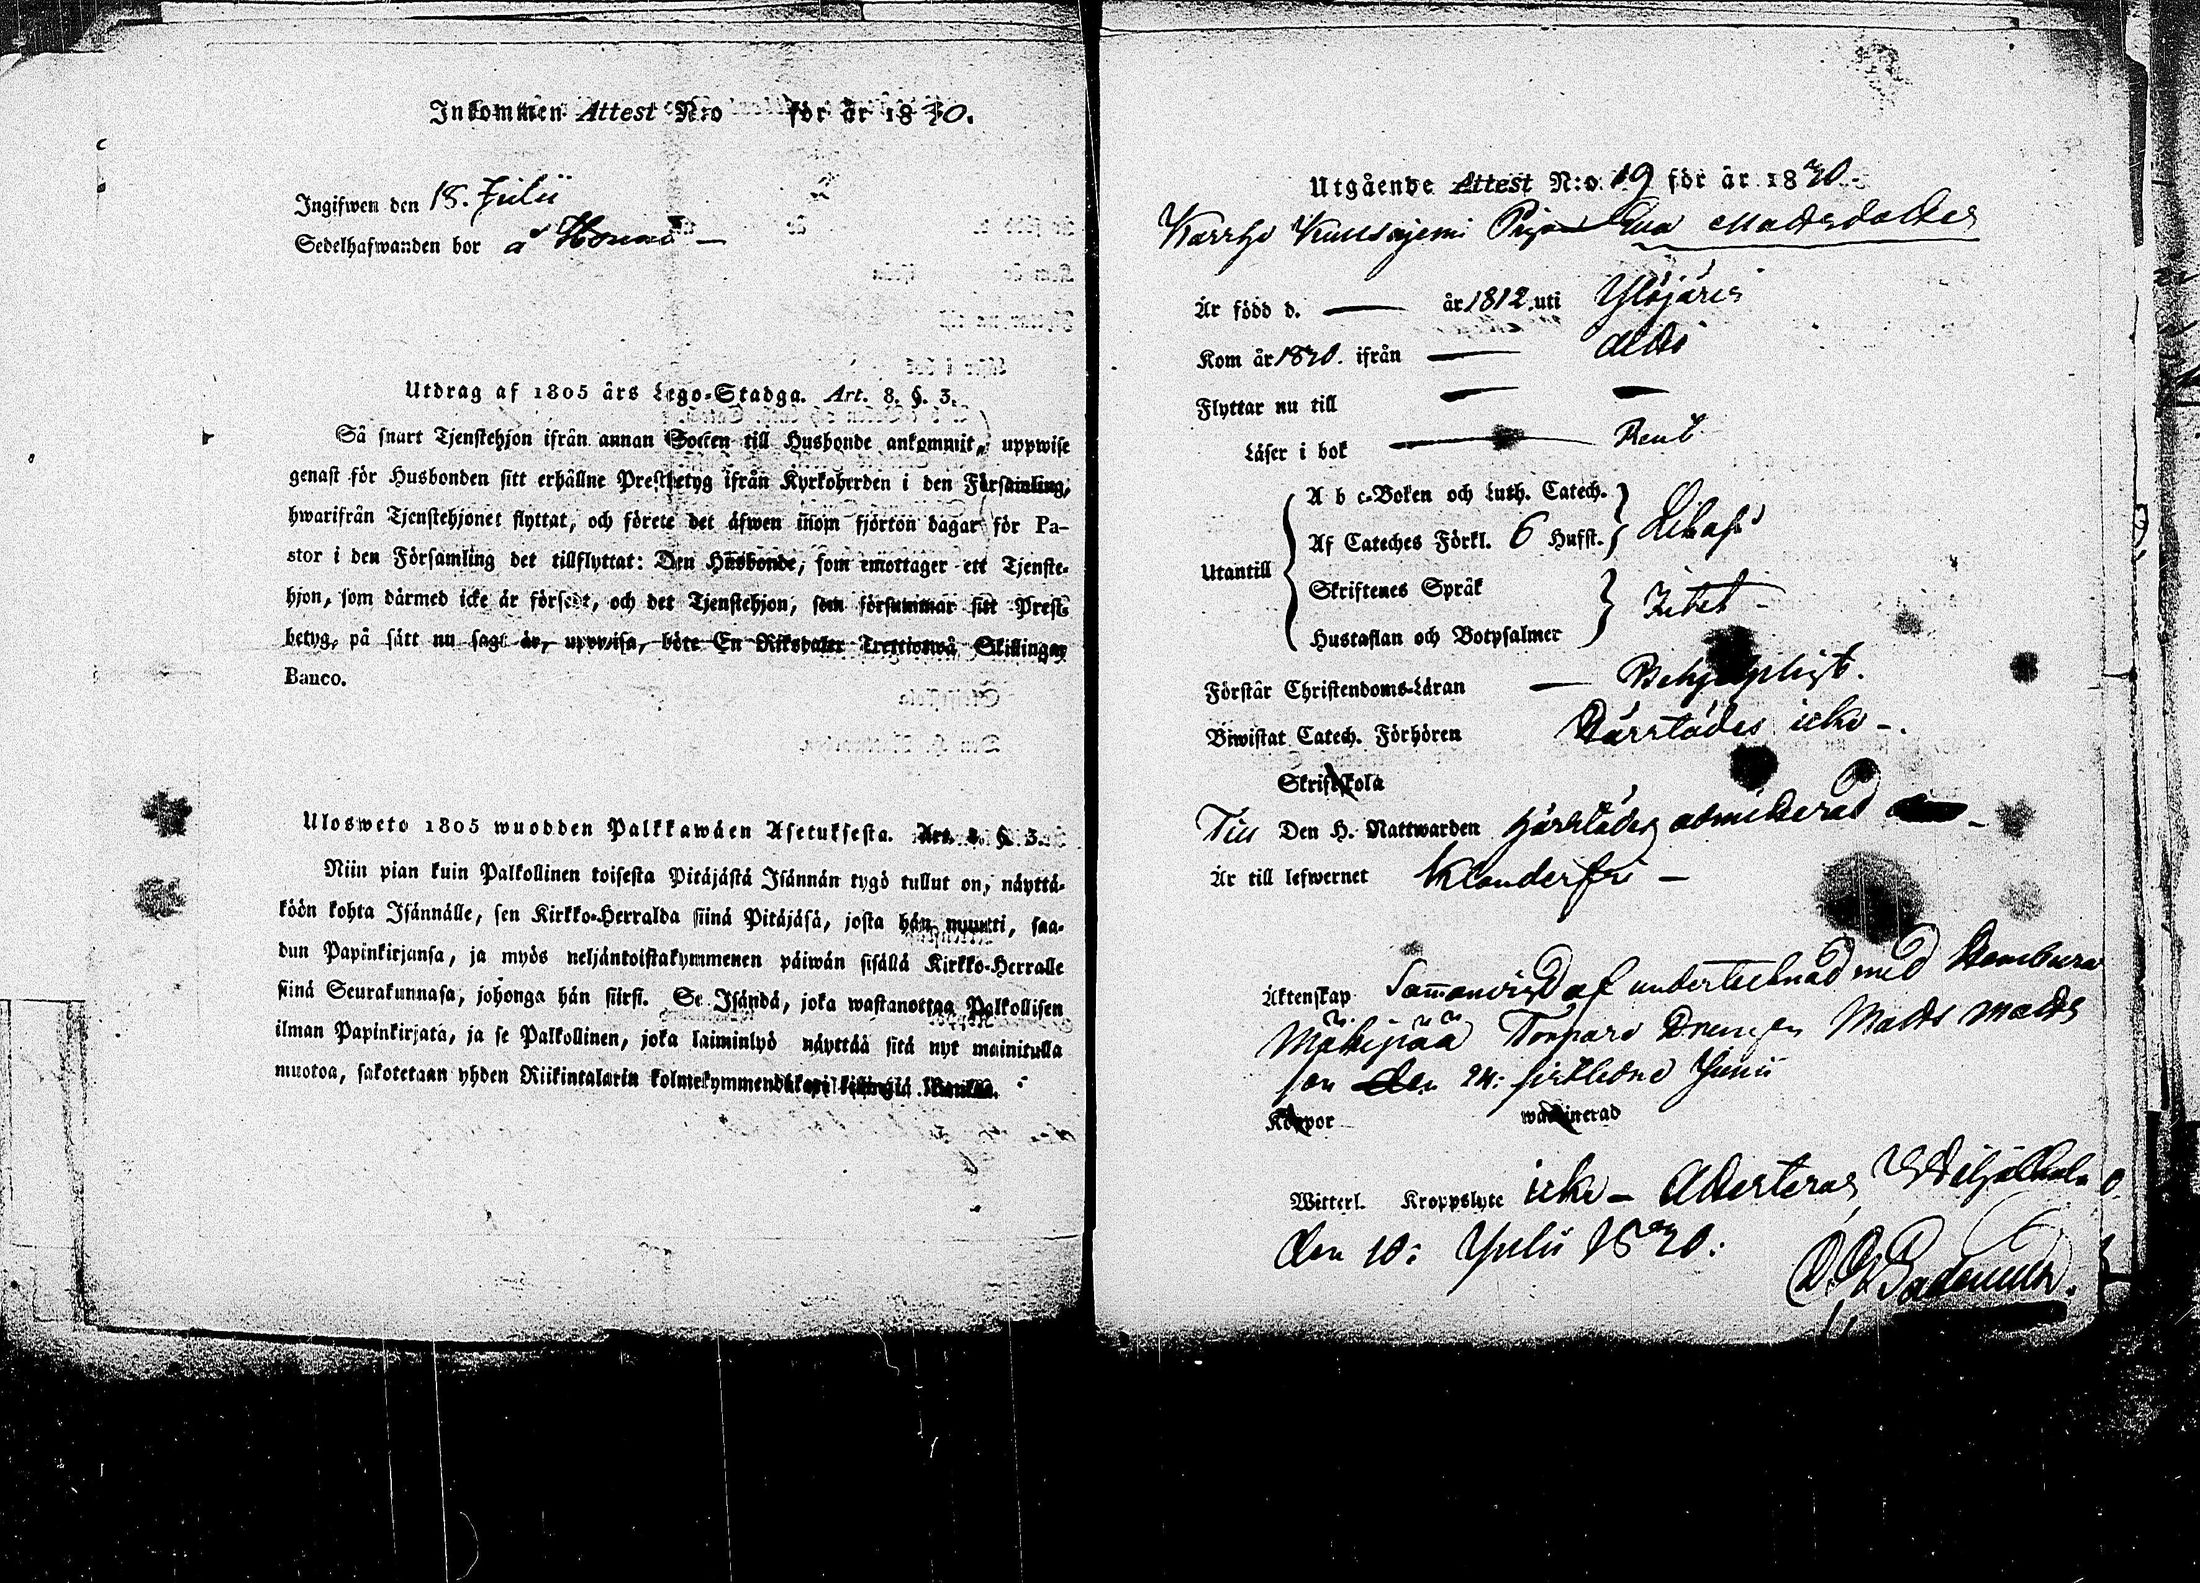 Inkommen Attest N:o för år 1830.
Ingifwen den 18. Julii
Sedelhafwanden bor å
Utdrag af 1805 års Lego-Stadga. Art. 8. §. 3.
Så snart Tjenstehjon ifrån annan Socken till Husbonde ankommit, uppwise
genast för Husbonden sitt erhållne Prestbetyg ifrån Kyrkoherden i den Församling,
hwarifrån Tjenstehjonet flyttat, och förete det äfwen inom fjorton dagar för Pa-
stor i den Församling det tillflyttat: Den Husbonde, som emottager ett Tjenste-
hjon, som därmed icke är försedt, och det Tjenstehjon, som försummar sitt Prest-
betyg, på sätt nu sagt är, uppwisa, böte En Riksdaler Trettiotwå Skillingar
Banco.
Ulosweto 1805 wuodden Palkkawäen Asetuksesta. Art. 8. §. 3.
Niin pian kuin Palkollinen toisesta Pitäjästä Isännän tygö tullut on, näyttä-
köön kohta Isännälle, sen Kirkko-Herralda siinä Pitäjäsä, josta hän muutti, saa-
dun Papinkirjansa, ja myös neljäntoistakymmenen päiwän sisällä Kirkko-Herralle
siinä Seurakunnasa, johonga hän siirsi. Se Isändä, joka wastanottaa Palkollisen
ilman Papinkirjata, ja se Palkollinen, joka laiminlyö näyttää sitä nyt mainitulla
muotoa, sakotetaan yhden Riikintalarin kolmekymmendäkaxi killingiä Banko.
Utgående Attest N:o 19 för år 1830.
Pigan Eva Mattsdotter
Är född d. — år 1812. uti Ylöjärvi
Kom år 1830. ifrån —
Flyttar nu till — —
Läser i bok — Rent
Utantill
A b c-Boken och Luth. Catech.
Af Cateches Förkl. 6 Hufst.
Skriftenes Språk
Hustaflan och Botpsalmer
Förstår Christendoms-Läran — Behjelpligt.
Biwistat Catech. Förhören Härstädes icke —.
Skriftskola
Till Den H. Nattwarden härstädes admitterad
Är till lefwernet Klanderfri —
Äktenskap Sammanvigd af undertecknad med
Mäkipää Torpare Drengen Matts Matts
son den 24: sistledne Junii
Koppor waccinerad
Witterl. Kroppslyte icke — Attesteras
den 10: Julii 1830: